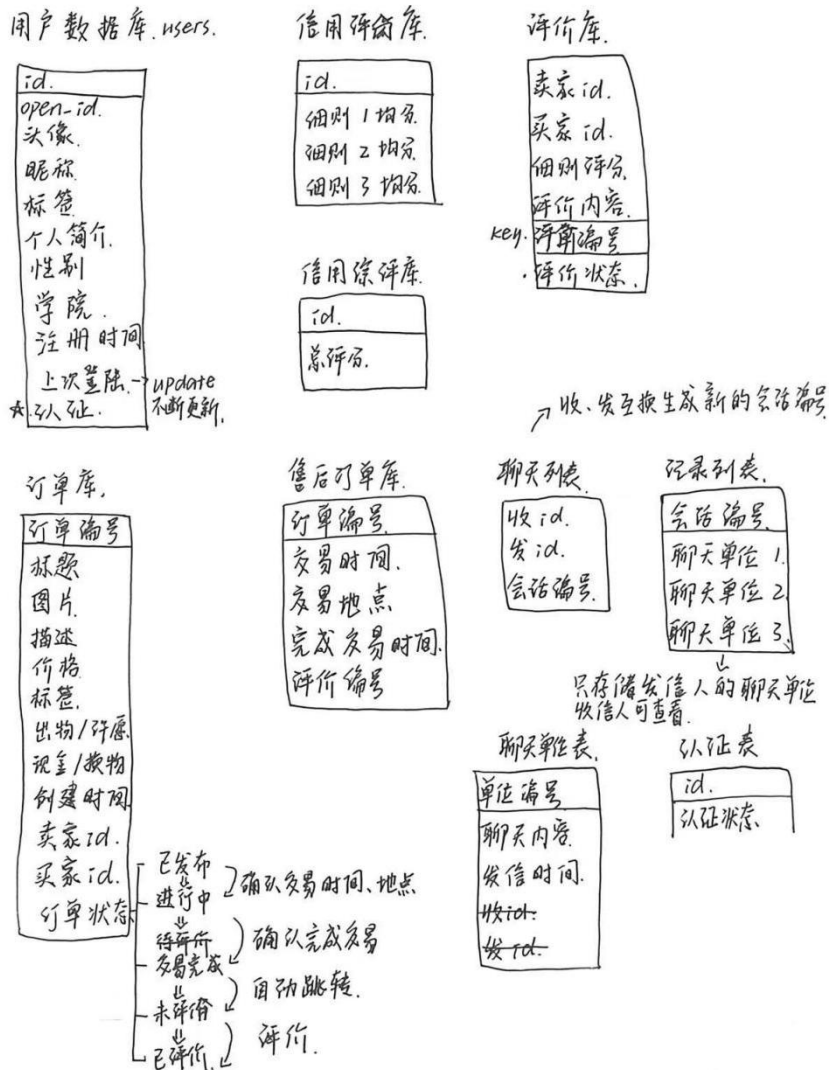 用户数据库.users.
id.
open-id.
头像.
昵称.
标签
个人简介.
性别
学院.
注册时间
上次登陆.→update
不断更新.
☆认证.
信用评价库.
id.
细则1均分.
细则2均分.
细则3均分.
信用综评库.
id.
总评分.
评价库.
卖家id.
买家id.
细则评分.
评价内容.
key.评价编号
.评价状态.
订单库.
订单编号
标题
图片.
描述
价格
标签.
出物/许愿.
现金/换物
创建时间
卖家id.
买家id.
订单状态
已发布
进行中
确认交易时间、地点
待评价
交易完成
确认完成交易
未评价
自动跳转.
已评价.
评价.
售后订单库.
订单编号.
交易时间.
交易地点
完成交易时间.
评价编号
↗收、发互换生成新的会话编号
聊天列表.
收id.
发id.
会话编号.
记录列表.
会话编号.
聊天单位1.
聊天单位2.
聊天单位3.
只存储发信人的聊天单位
收信人可查看.
聊天单位表.
单位编号
聊天内容.
发信时间.
收id.
发id.
认证表
id.
认证状态.